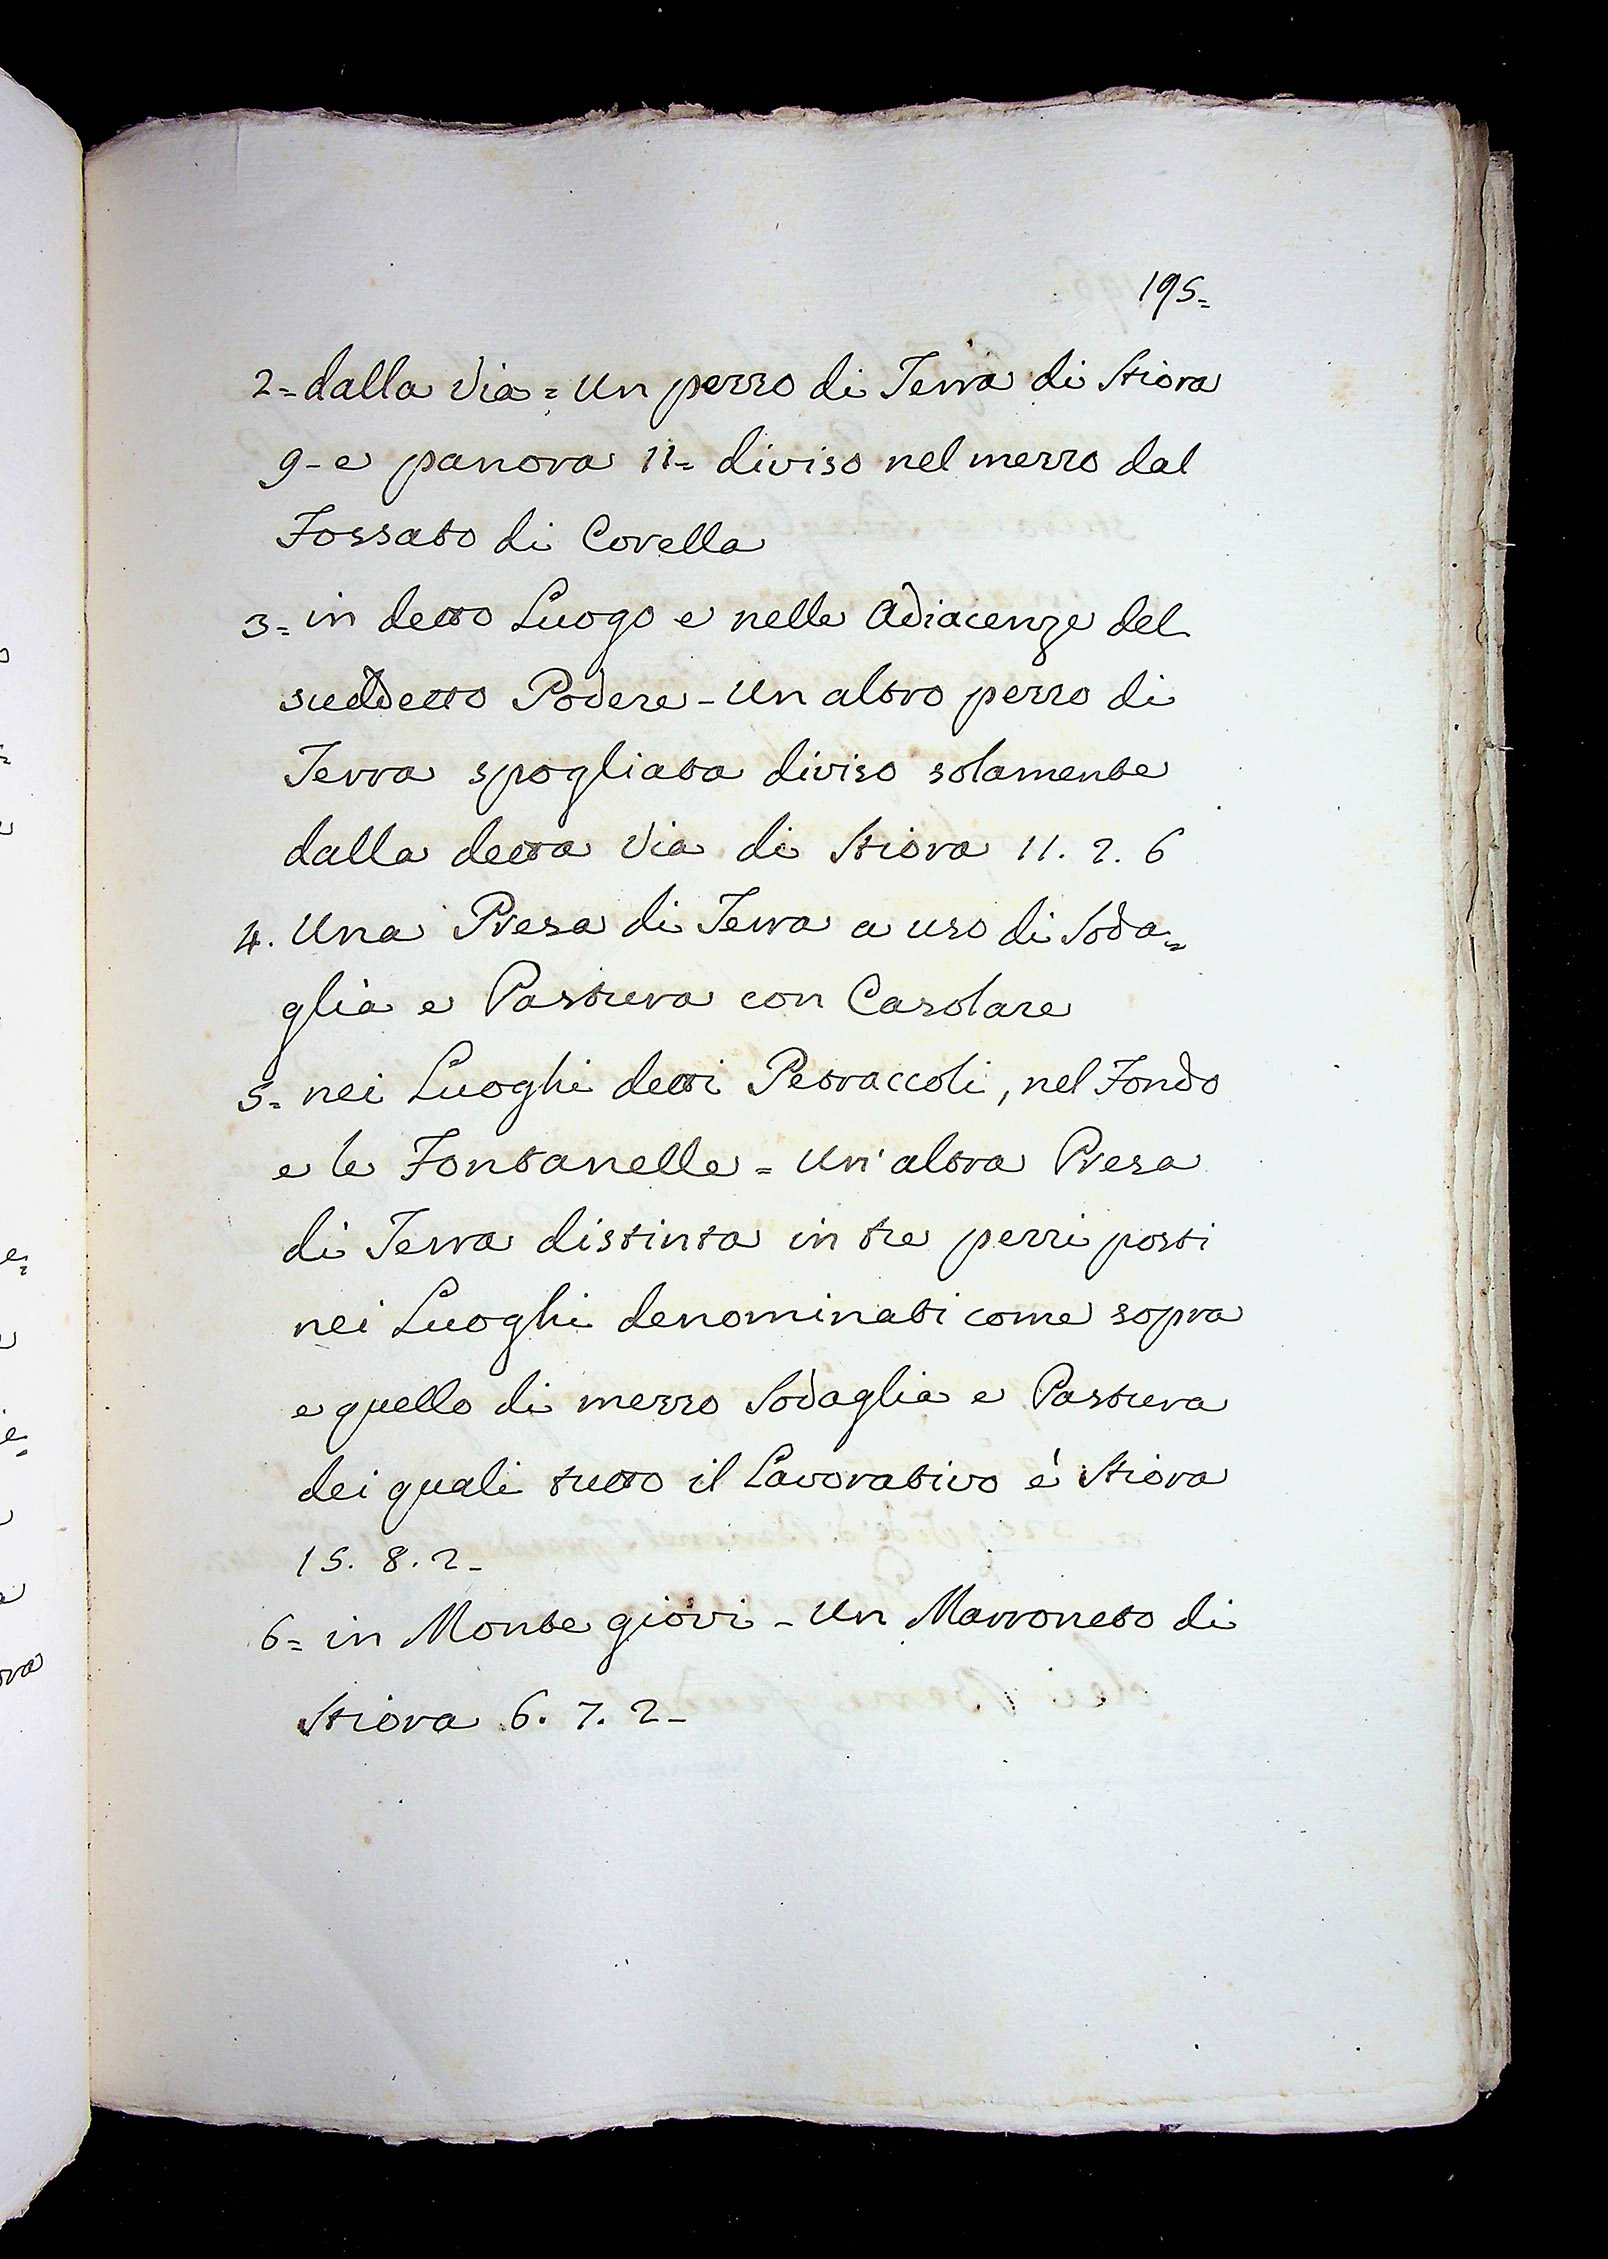 195=
2= dalla Via = Un pezzo di Terra di Stiora
9 - e panora 11= diviso nel mezzo dal
Fossato di Corella
3= in detto Luogo e nelle Adiacenze del
sudetto Podere - Un altro pezzo di
Terra spogliata diviso solamente
dalla detta Via di Stiora 11. 2. 6
4. Una Presa di Terra a uso di Soda=
glia e Pastura con Casolare
5= nei Luoghi detti Petraccoli, nel Fondo
e le Fontanelle = Un' altra Presa
di Terra distinta in tre pezzi posti
nei Luoghi denominati come sopra
e quello di mezzo Sodaglia e Pastura
dei quali tutto il Lavorativo è Stiora
15. 8. 2 -
6= in Monte giovi - Un Marroneto di
Stiora 6. 7. 2 -